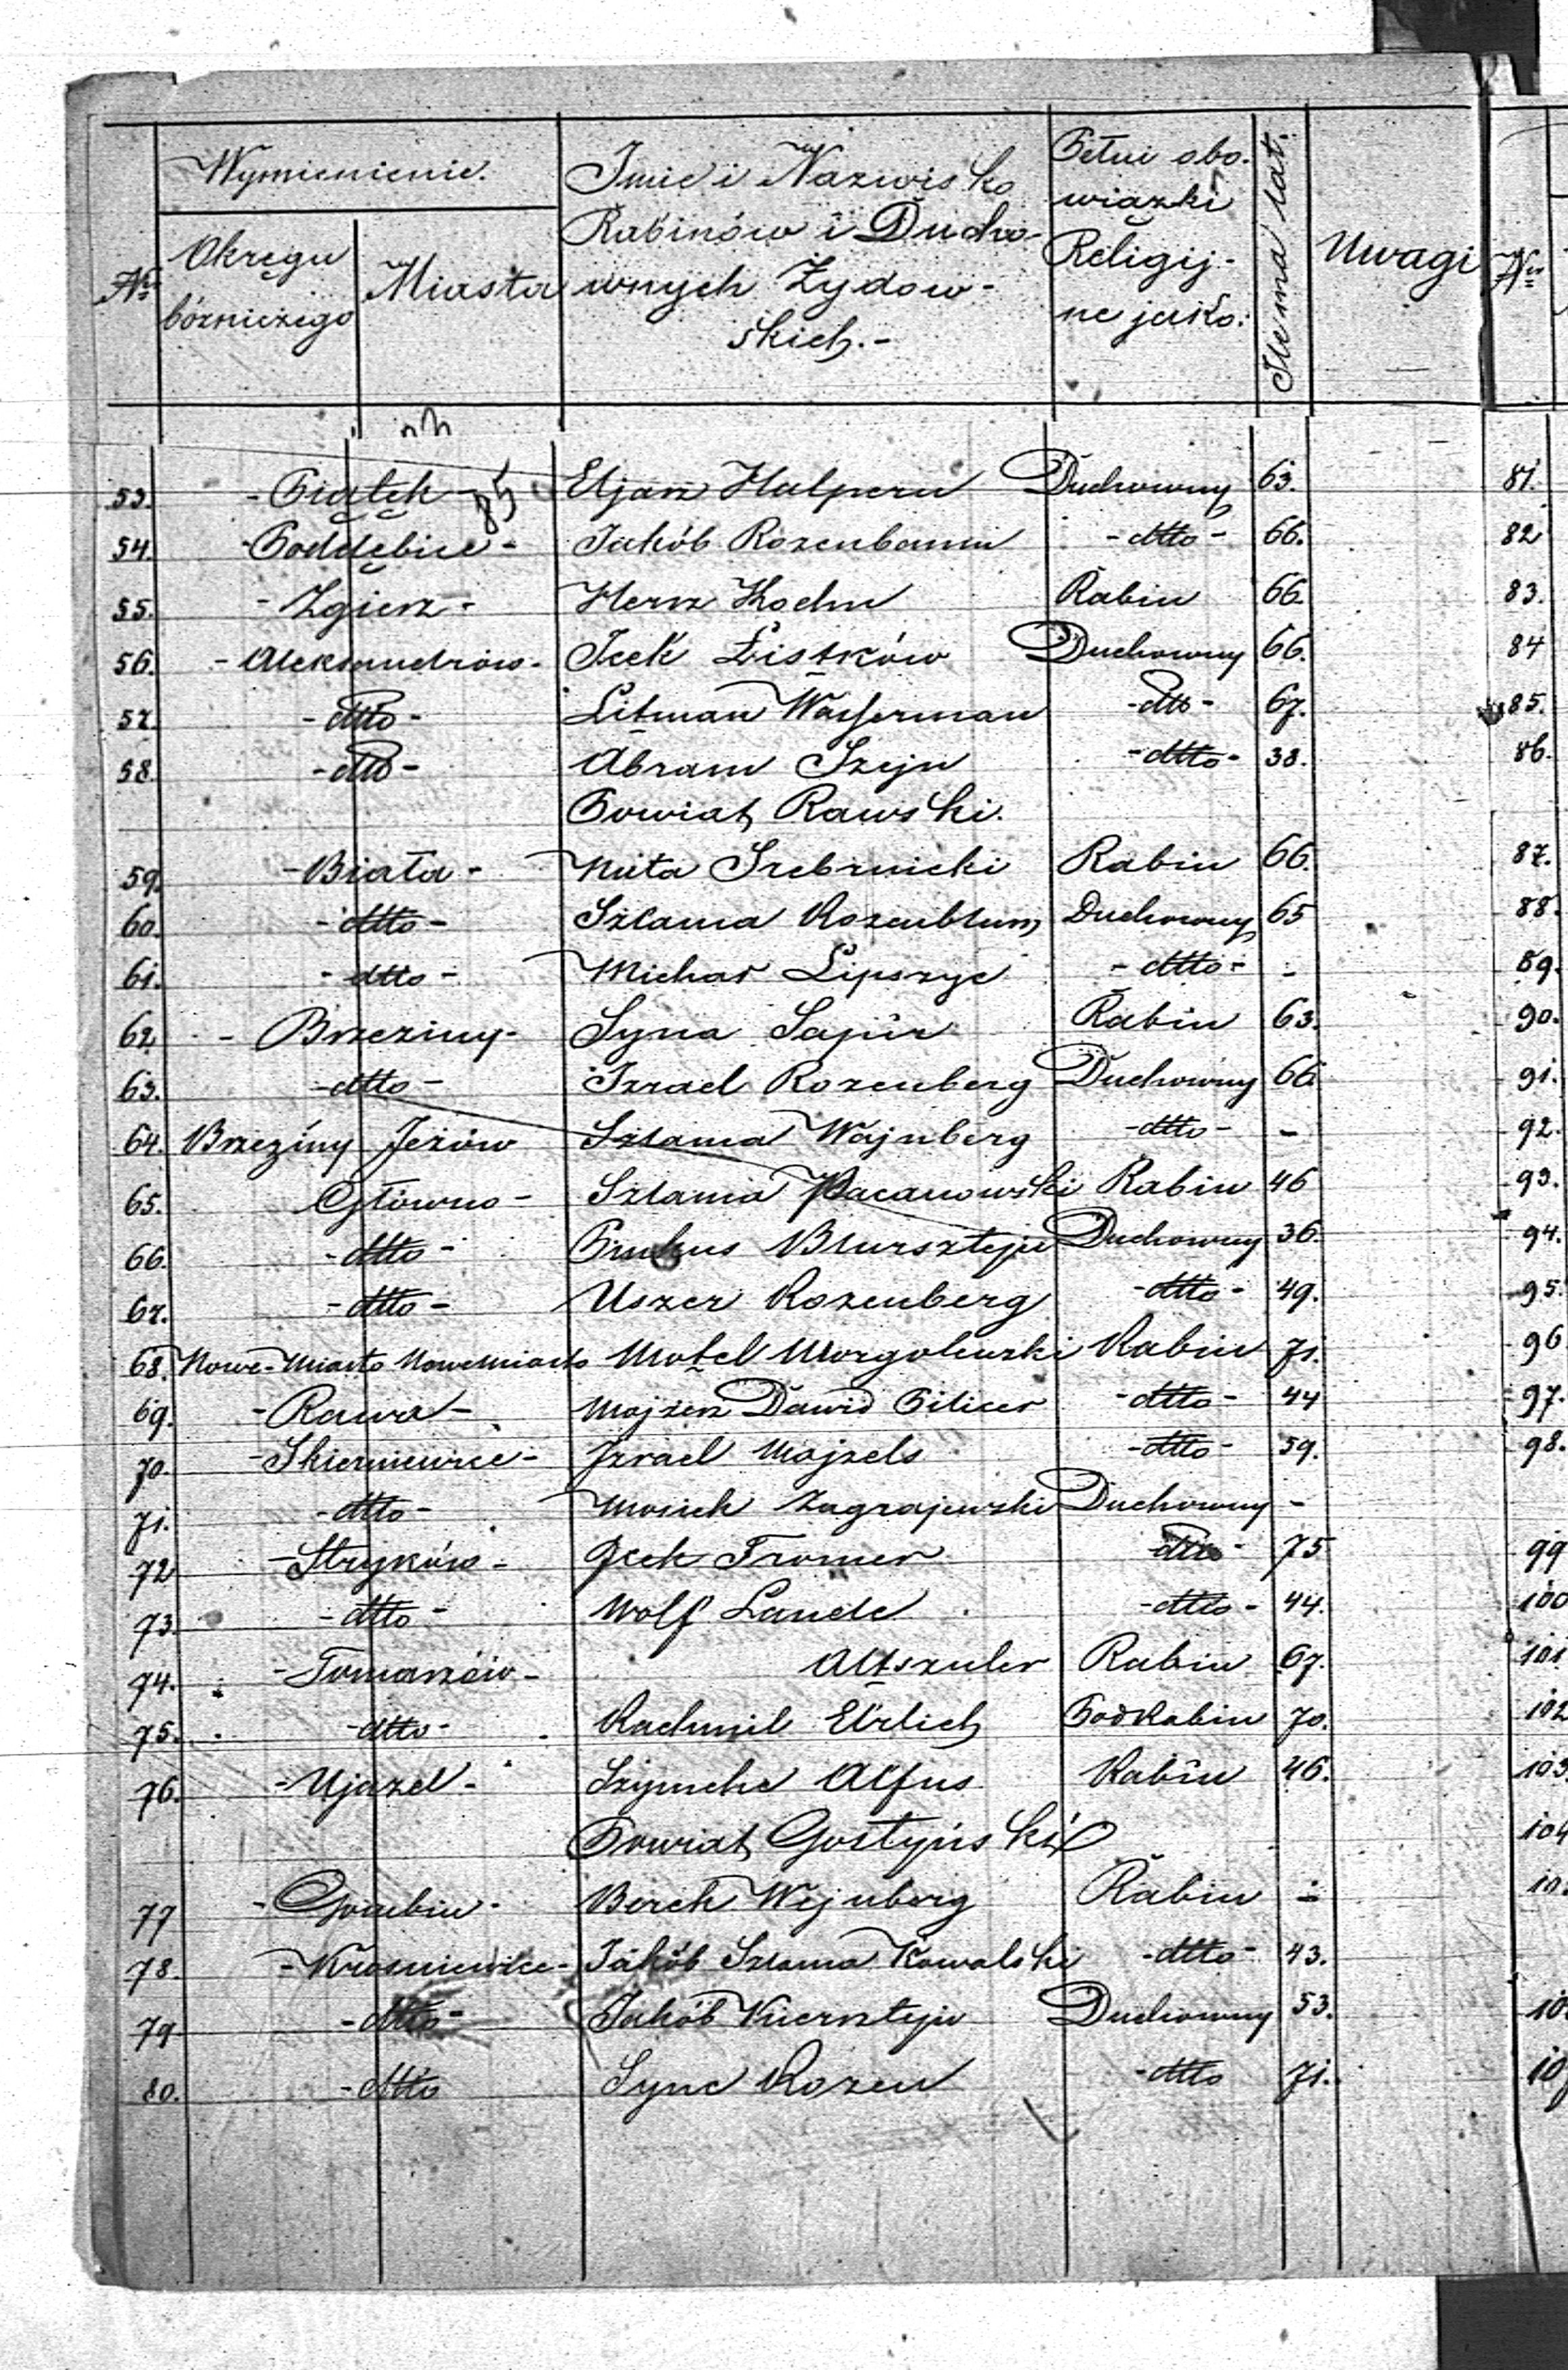 Wymienienie.
Okręgu bóżniczego
Miasta
Imie i Nazwisko Rabinów i Duchownych Żydowskich.-
Pełni obowiązki Religijne jako:
Ile ma lat.
Uwagi
Nr
Nr
85
53. - Piątek - Eljasz Halpern Duchowny 63. 81.
54. - Poddębice - Jakób Rozenbaum - dtto - 66. 82
55. - Zgierz - Hersz Kohn Rabin 66. 83.
56. - Aleksandrów - Icek Listków Duchowny 66. 84
57. - dtto - Litman Wasserman - dtto - 67. 85.
58. - dtto - Abram Szejn - dtto - 38. 86.
Powiat Rawski.
59. - Biała - Nuta Srebrnicki Rabin 66. 87.
60. - dtto - Szlama Rozenblum Duchowny 65 88.
61. - dtto - Michał Lipszyc - dtto - - 89.
62. - Brzeziny - Syna Sapir Rabin 63. 90.
63. - dtto - Izrael Rozenberg Duchowny 66. 91.
64. Brzeziny Jeżów Szlama Wajnberg - dtto - - 92.
65. Główno - Szlama Pacanowski Rabin 46 93.
66. - dtto - Pinkus Blursztejn Duchowny 36. 94.
67. - dtto - Uszer Rozenberg - dtto - 49. 95.
68. Nowe-Miasto Nowemiasto Motel Morgolenski Rabin 71. 96
69. - Rawa - Mojżesz Dawid Pilicer - dtto - 44 97.
70. - Skierniewice - Izrael Majzels - dtto - 59. 98.
71. - dtto - Mosiek Zagrajewski Duchowny -
72 - Stryków - Icek Fromer - dtto - 75 99
73. - dtto - Wolf Lande - dtto - 44. 100
74. - Tomaszów - Altszuler Rabin 67. 101
75. - dtto - Rachmil Erlich PodRabin 70. 102
76. - Ujazd - Szymche Alfus Rabin 46. 103
Powiat Gostyński 104
77 - Gombin - Berek Wejnberg Rabin -
78. - Krosniewice - Jakób Szlama Kowalski - dtto - 43.
79 - dtto - Jakób Kiersztejn Duchowny 53.
80. - dtto Syne Rozen - dtto 71.